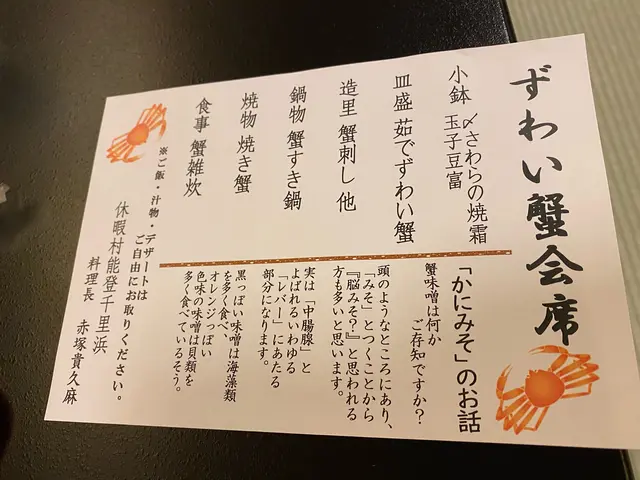 ずわい蟹会席
小鉢 〆さわらの焼霜
玉子豆富
皿盛 茹でずわい蟹
造里 蟹刺し 他
鍋物 蟹すき鍋
焼物 焼き蟹
食事 蟹雑炊
「かにみそ」のお話
蟹味噌は何か
ご存知ですか？
頭のようなところにあり、
「みそ」とつくことから
『脳みそ？』と思われる
方も多いと思います。
実は「中腸腺」と
よばれるいわゆる
「レバー」にあたる
部分になります。
黒っぽい味噌は海藻類
を多く食べ、
オレンジっぽい
色味の味噌は貝類を
多く食べているそう。
※ご飯・汁物・デザートは
ご自由にお取りください。
休暇村能登千里浜
料理長 赤塚貴久麻